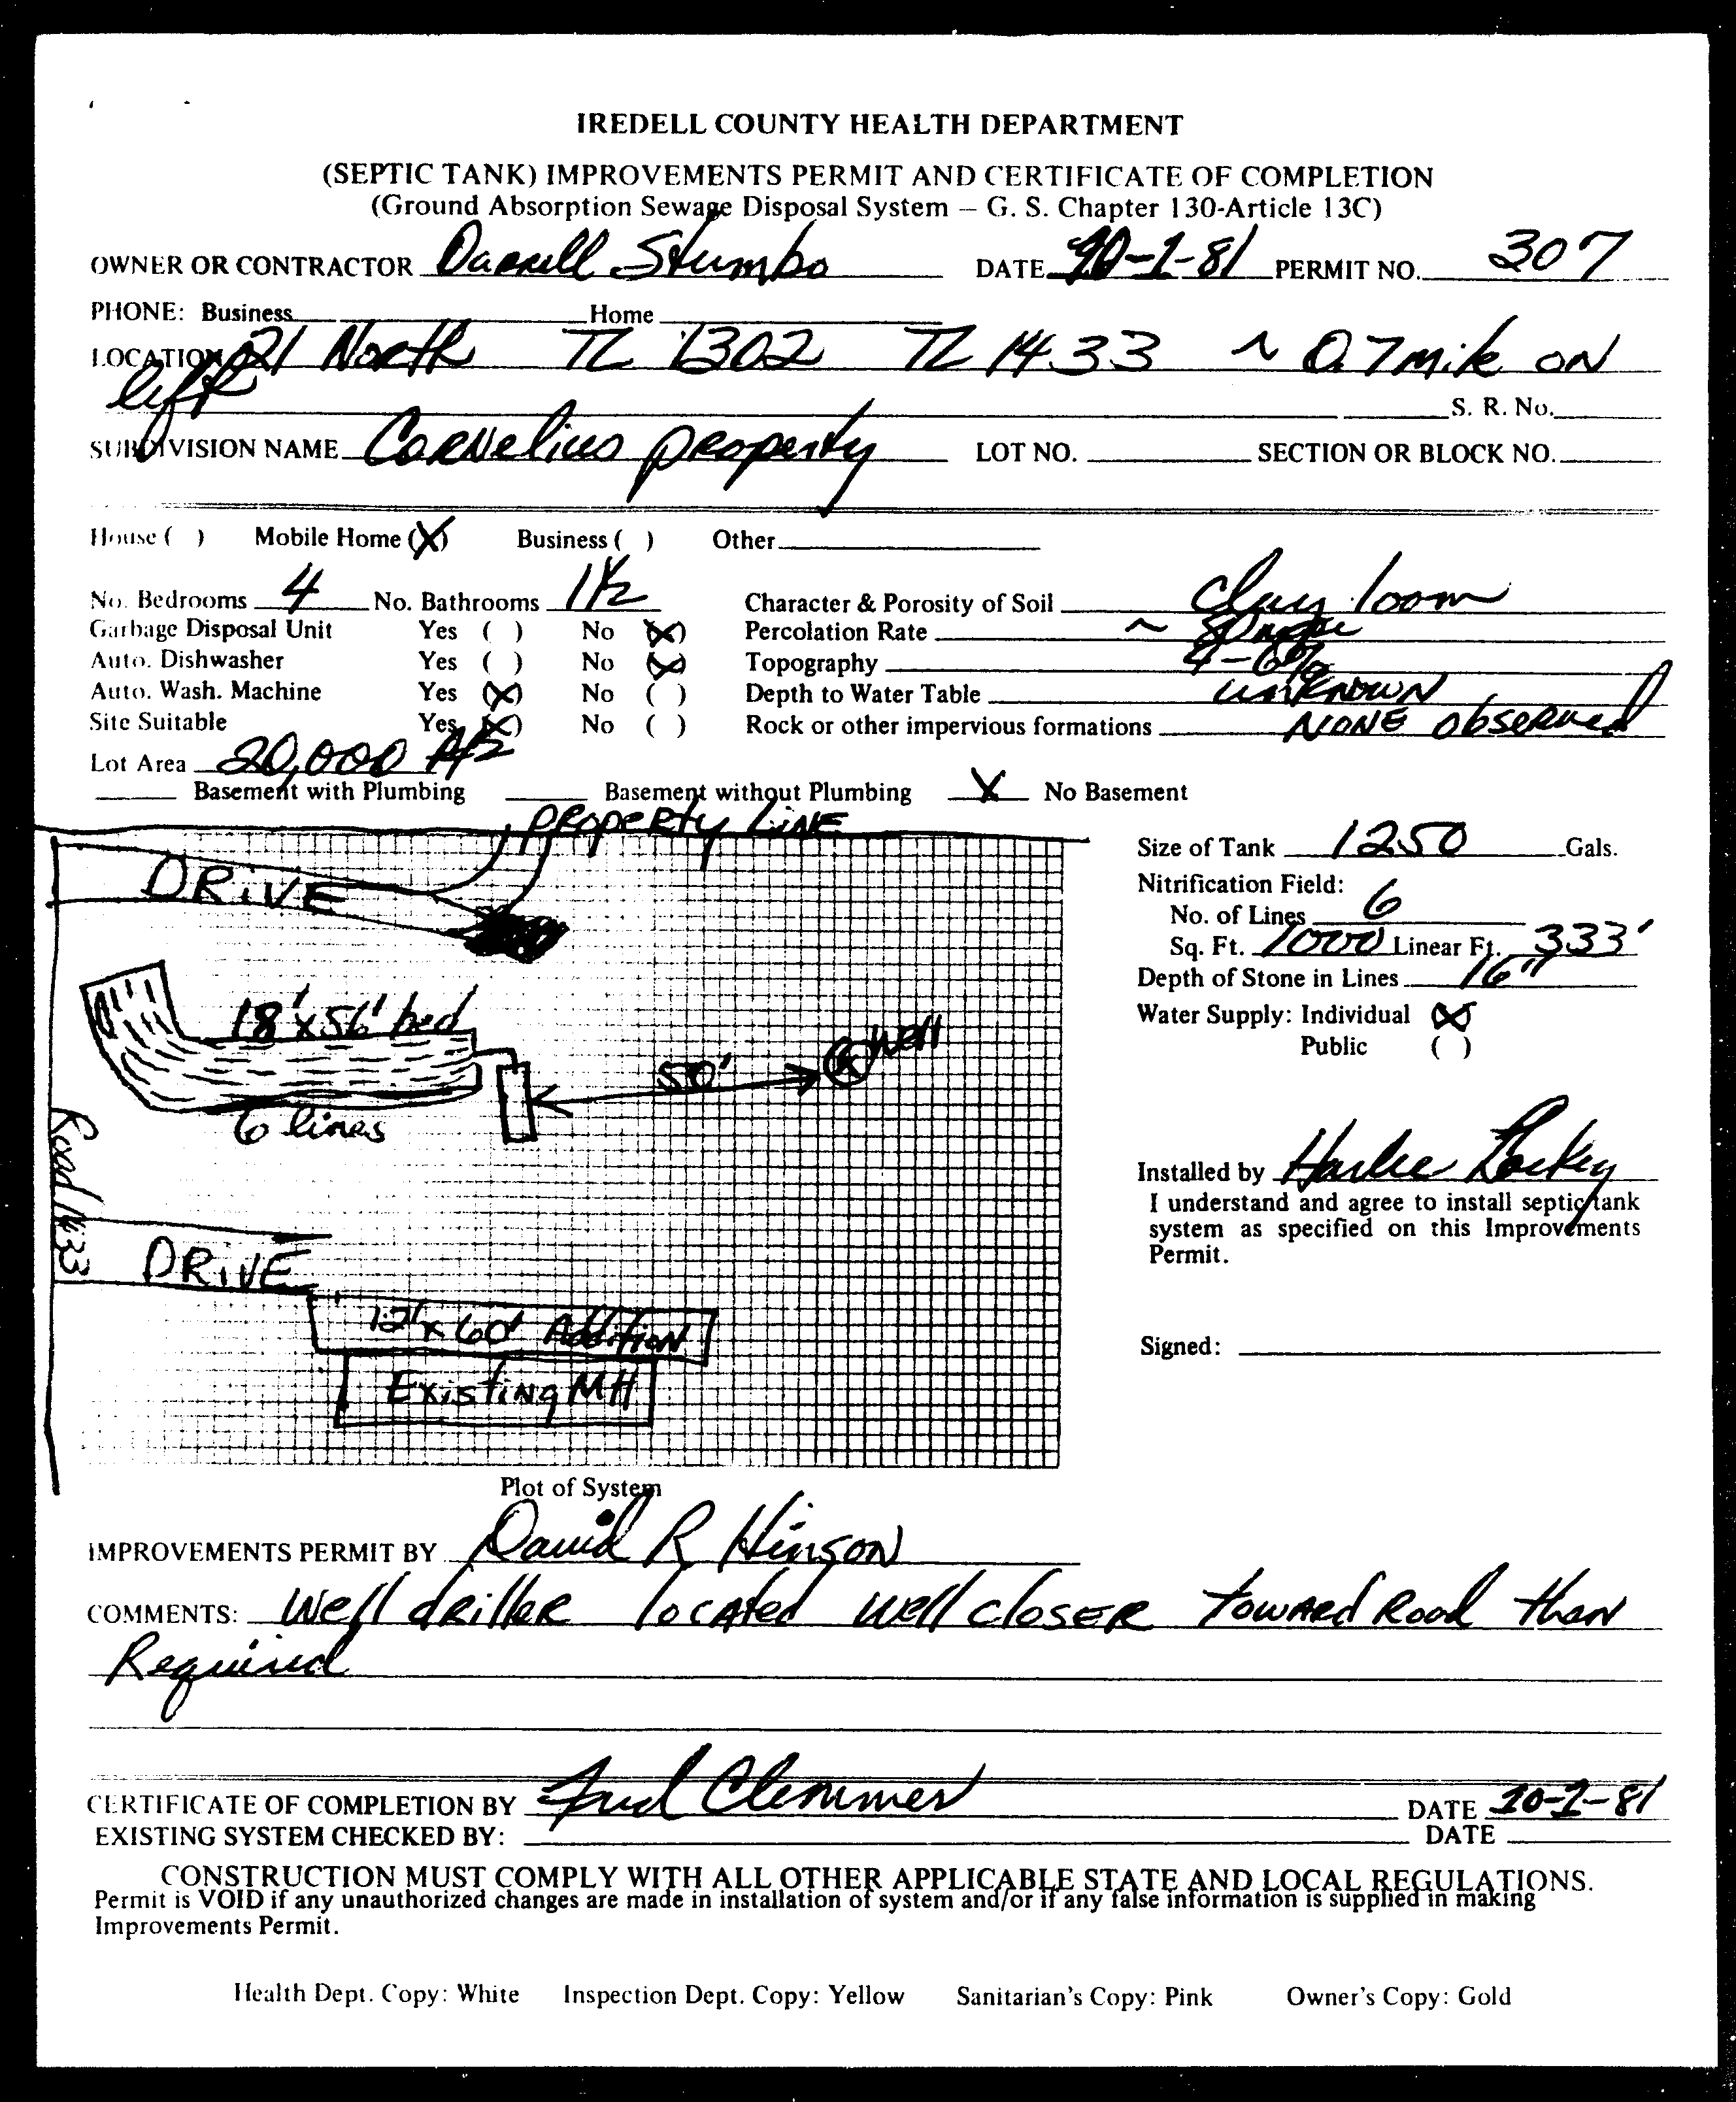 IREDELL COUNTY HEALTH DEPARTMENT
(SEPTIC TANK) IMPROVEMENTS PERMIT AND CERTIFICATE OF COMPLETION
(Ground Absorption Sewage Disposal System — G. S. Chapter 130-Article 13C)
OWNER OR CONTRACTOR Darrell Stumbo DATE 10-1-81 PERMIT NO. 307
PHONE: Business Home
LOCATION 21 North TL 1302 TL 1433 ~ 0.7 mile on
left S. R. No.
SUBDIVISION NAME Cornelius property LOT NO. SECTION OR BLOCK NO.
House ( ) Mobile Home (X) Business ( ) Other
No. Bedrooms 4 No. Bathrooms 1 1/2 Character & Porosity of Soil clay loom
Garbage Disposal Unit Yes ( ) No (X) Percolation Rate ~
Auto. Dishwasher Yes ( ) No (X) Topography 4-6%
Auto. Wash. Machine Yes (X) No ( ) Depth to Water Table unknown
Site Suitable Yes (X) No ( ) Rock or other impervious formations NONE observed
Lot Area 20,000 ft2
Basement with Plumbing Basement without Plumbing X No Basement
property LINE
DRIVE
18' x 56' bed
Well
50'
6 lines
Road 1433
DRIVE
12' x 60' Addition
Existing MH
Plot of System
Size of Tank 1250 Gals.
Nitrification Field:
No. of Lines 6
Sq. Ft. 1000 Linear Ft. 333'
Depth of Stone in Lines 16"
Water Supply: Individual (X)
Public ( )
Installed by Harlie
I understand and agree to install septic tank
system as specified on this Improvements
Permit.
Signed:
IMPROVEMENTS PERMIT BY David R Hinson
COMMENTS: Well driller located well closer toward Road than
Required
CERTIFICATE OF COMPLETION BY Fred Clemmer DATE 10-1-81
EXISTING SYSTEM CHECKED BY: DATE
CONSTRUCTION MUST COMPLY WITH ALL OTHER APPLICABLE STATE AND LOCAL REGULATIONS.
Permit is VOID if any unauthorized changes are made in installation of system and/or if any false information is supplied in making
Improvements Permit.
Health Dept. Copy: White Inspection Dept. Copy: Yellow Sanitarian's Copy: Pink Owner's Copy: Gold